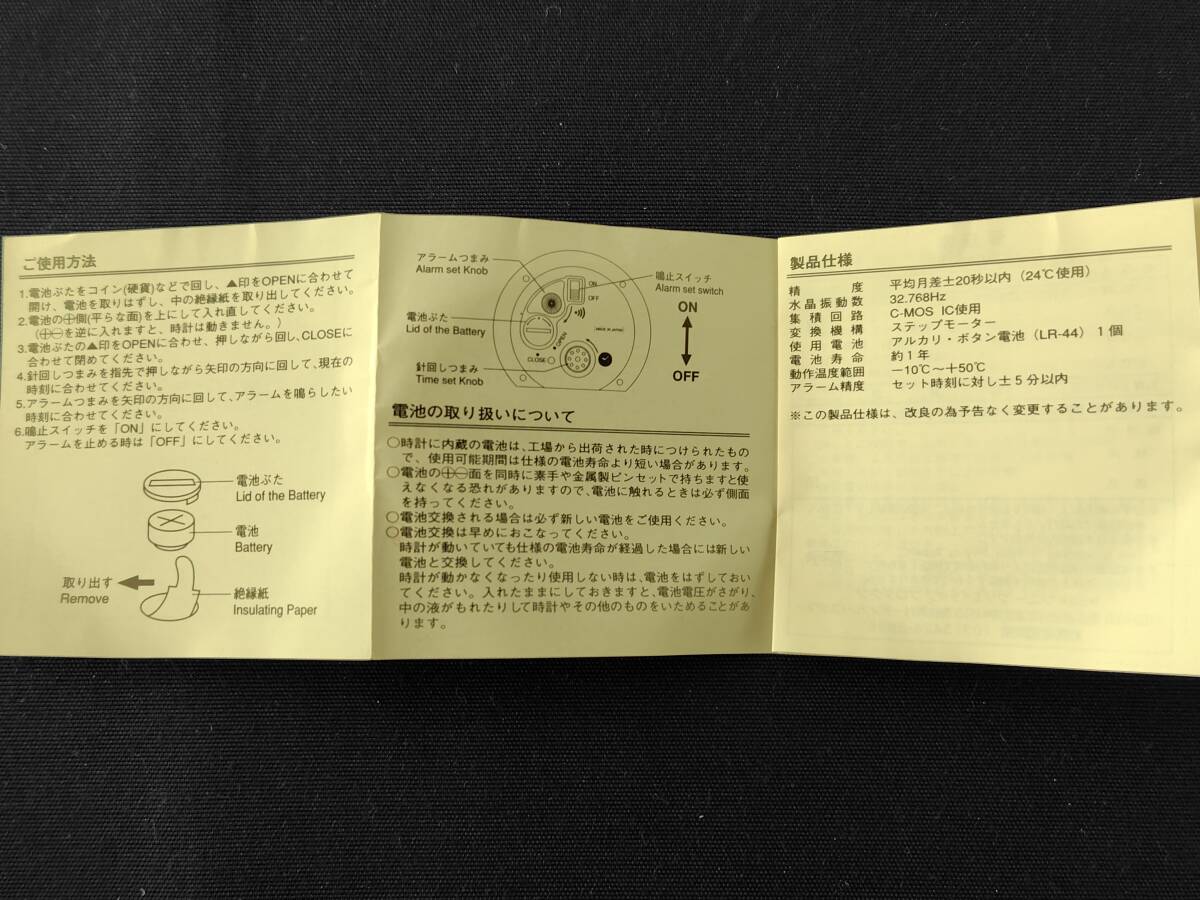 ご使用方法
1.電池ぶたをコイン(硬貨)などで回し、▲印をOPENに合わせて
開け、電池を取りはずし、中の絶縁紙を取り出してください。
2.電池の⊕側(平らな面)を上にして入れ直してください。
(⊕⊖を逆に入れますと、時計は動きません。)
3.電池ぶたの▲印をOPENに合わせ、押しながら回し、CLOSEに
合わせて閉めてください。
4.針回しつまみを指先で押しながら矢印の方向に回して、現在の
時刻に合わせてください。
5.アラームつまみを矢印の方向に回して、アラームを鳴らしたい
時刻に合わせてください。
6.鳴止スイッチを「ON」にしてください。
アラームを止める時は「OFF」にしてください。
電池ぶた
Lid of the Battery
電池
Battery
取り出す
Remove
絶縁紙
Insulating Paper
アラームつまみ
Alarm set Knob
電池ぶた
Lid of the Battery
針回しつまみ
Time set Knob
ON
OFF
MADE IN JAPAN
OPEN
CLOSE
鳴止スイッチ
Alarm set switch
ON
OFF
電池の取り扱いについて
○時計に内蔵の電池は、工場から出荷された時につけられたもの
で、使用可能期間は仕様の電池寿命より短い場合があります。
○電池の⊕⊖面を同時に素手や金属製ピンセットで持ちますと使
えなくなる恐れがありますので、電池に触れるときは必ず側面
を持ってください。
○電池交換される場合は必ず新しい電池をご使用ください。
○電池交換は早めにおこなってください。
時計が動いていても仕様の電池寿命が経過した場合には新しい
電池と交換してください。
時計が動かなくなったり使用しない時は、電池をはずしておい
てください。入れたままにしておきますと、電池電圧がさがり、
中の液がもれたりして時計やその他のものをいためることがあ
ります。
製品仕様
精度 平均月差±20秒以内(24℃使用)
水晶振動数 32.768Hz
集積回路 C-MOS IC使用
変換機構 ステップモーター
使用電池 アルカリ・ボタン電池(LR-44)1個
電池寿命 約1年
動作温度範囲 −10℃〜+50℃
アラーム精度 セット時刻に対し±5分以内
※この製品仕様は、改良の為予告なく変更することがあります。